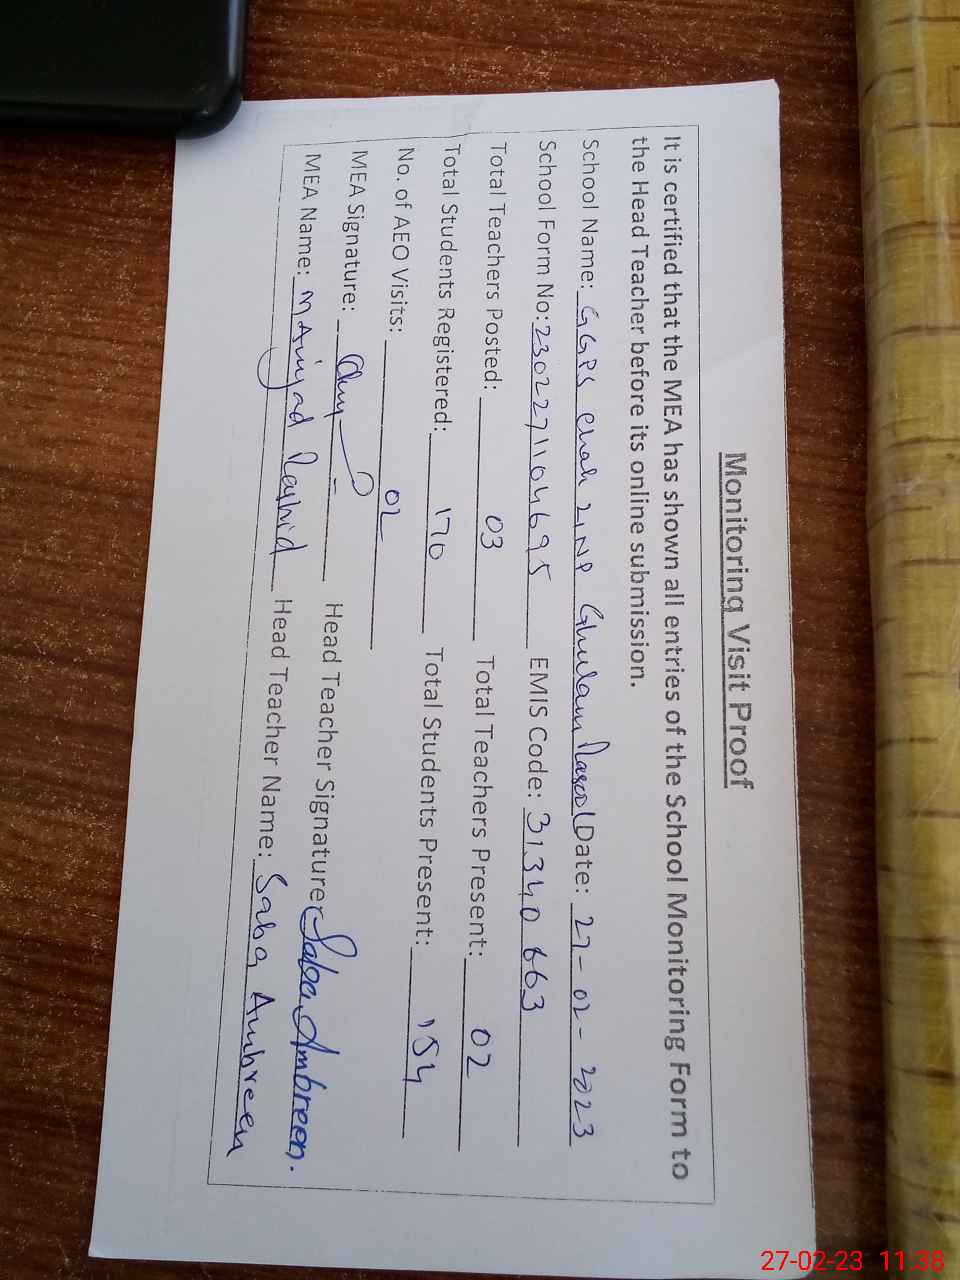 Monitoring Visit Proof
It is certified that the MEA has shown all entries of the School Monitoring Form to
the Head Teacher before its online submission.
School Name: GGPS chak 21NP Ghulam Rasool Date: 27-02-2023
School Form No: 2302271104695 EMIS Code: 31340663
Total Teachers Posted: 03 Total Teachers Present: 02
Total Students Registered: 170 Total Students Present: 154
No. of AEO Visits: 02
MEA Signature: Head Teacher Signature: Saba Ambreen.
MEA Name: M Amjad Rashid Head Teacher Name: Saba Ambreen
27-02-23 11:38